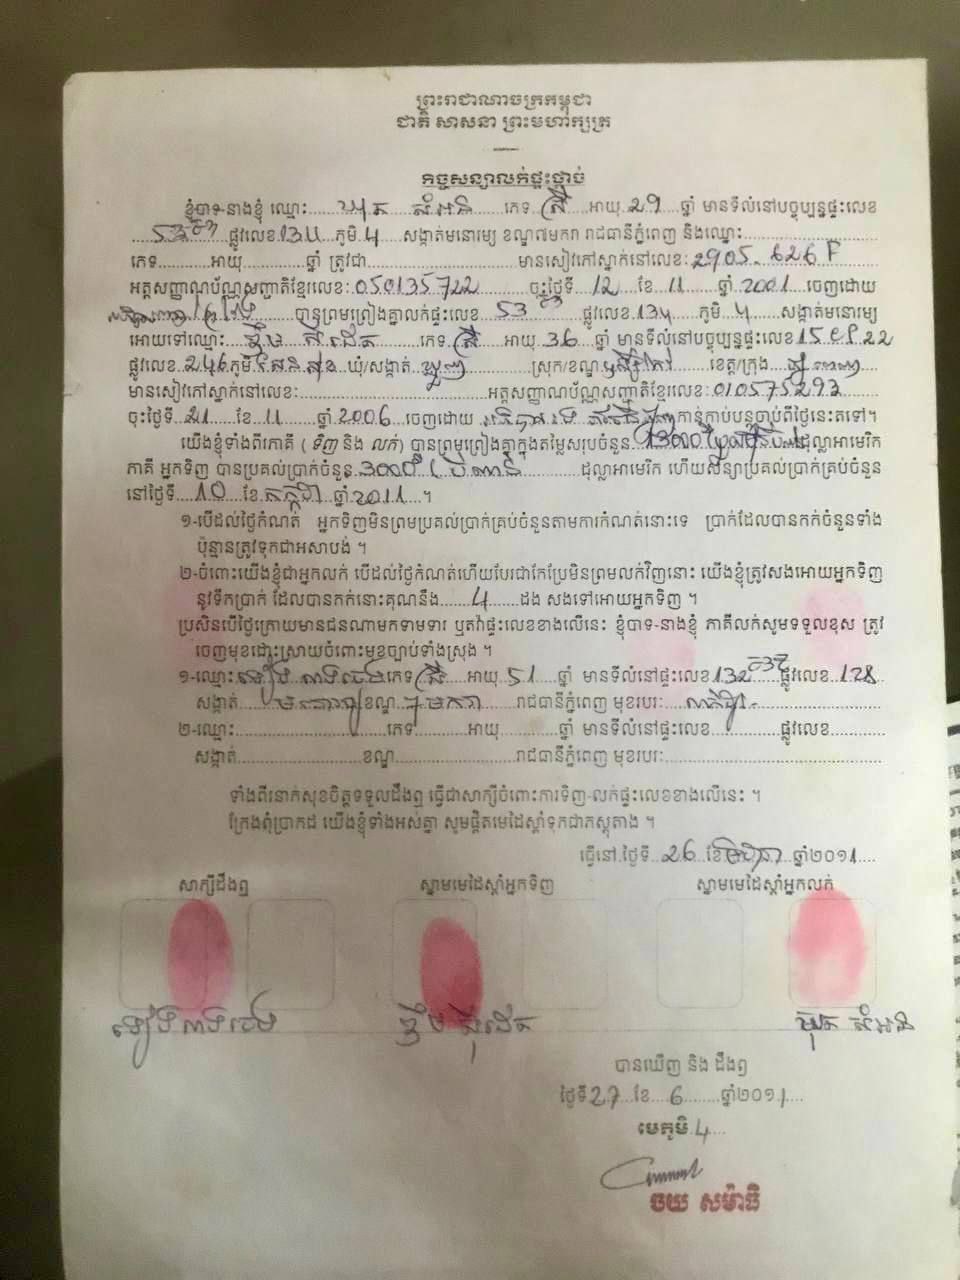 ព្រះរាជាណាចក្រកម្ពុជា
ជាតិ សាសនា ព្រះមហាក្សត្រ
កិច្ចសន្យាលក់ផ្ទះផ្តាច់
ខ្ញុំបាទ-នាងខ្ញុំ ឈ្មោះ......... សំអន.......ភេទ..ស្រី...អាយុ.29...ឆ្នាំ មានទីលំនៅបច្ចុប្បន្នផ្ទះលេខ
...53......ផ្លូវលេខ.134...ភូមិ.4.....សង្កាត់មនោរម្យ ខណ្ឌ៧មករា រាជធានីភ្នំពេញ និងឈ្មោះ..............................
ភេទ..............អាយុ................ឆ្នាំ ត្រូវជា.....................................មានសៀវភៅស្នាក់នៅលេខៈ 2905. 626 P
អត្តសញ្ញាណប័ណ្ណសញ្ជាតិខ្មែរលេខៈ 050135722............ចុះថ្ងៃទី....12....ខែ..11........ឆ្នាំ.2001.....ចេញដោយ
.........បានព្រមព្រៀងគ្នាលក់ផ្ទះលេខ....53..............ផ្លូវលេខ.134......ភូមិ...4......សង្កាត់មនោរម្យ
អោយទៅឈ្មោះ...........ភេទ..ស្រី....អាយុ.36....ឆ្នាំ មានទីលំនៅបច្ចុប្បន្នផ្ទះលេខ15.
ផ្លូវលេខ.246.ភូមិ.សែនសុខ ឃុំ/សង្កាត់.ឃ្មួញ...........ស្រុក/ខណ្ឌ...........ខេត្ត/ក្រុង....ភ្នំពេញ
មានសៀវភៅស្នាក់នៅលេខៈ..............................................អត្តសញ្ញាណប័ណ្ណសញ្ជាតិខ្មែរលេខៈ010575293
ចុះថ្ងៃទី..21.....ខែ...11........ឆ្នាំ.2006....ចេញដោយ.......កាន់កាប់បន្តចាប់ពីថ្ងៃនេះតទៅ។
យើងខ្ញុំទាំងពីរភាគី ( ទិញ និង លក់) បានព្រមព្រៀងគ្នាក្នុងតម្លៃសរុបចំនួន..13000.....ដុល្លាអាមេរិក
ភាគី អ្នកទិញ បានប្រគល់ប្រាក់ចំនួន.3000(បីពាន់..........ដុល្លាអាមេរិក ហើយសន្យាប្រគល់ប្រាក់គ្រប់ចំនួន
នៅថ្ងៃទី....10....ខែ.កក្កដា..ឆ្នាំ.2011...។
១-បើដល់ថ្ងៃកំណត់ អ្នកទិញមិនព្រមប្រគល់ប្រាក់គ្រប់ចំនួនតាមការកំណត់នោះទេ ប្រាក់ដែលបានកក់ចំនួនទាំង
ប៉ុន្មានត្រូវទុកជាអសាបង់ ។
២-ចំពោះយើងខ្ញុំជាអ្នកលក់ បើដល់ថ្ងៃកំណត់ហើយបែរជាកែប្រែមិនព្រមលក់វិញនោះ យើងខ្ញុំត្រូវសងអោយអ្នកទិញ
នូវទឹកប្រាក់ ដែលបានកក់នោះគុណនឹង.......4.......ដង សងទៅអោយអ្នកទិញ ។
ប្រសិនបើថ្ងៃក្រោយមានជនណាមកទាមទារ ឬតវ៉ាផ្ទះលេខខាងលើនេះ ខ្ញុំបាទ-នាងខ្ញុំ ភាគីលក់សូមទទួលខុស ត្រូវ
ចេញមុខដោះស្រាយចំពោះមុខច្បាប់ទាំងស្រុង ។
១-ឈ្មោះ.......ភេទ.ស្រី....អាយុ..51.....ឆ្នាំ មានទីលំនៅផ្ទះលេខ132......ផ្លូវលេខ..128
សង្កាត់.....មនោរម្យ.ខណ្ឌ..7មករា..........រាជធានីភ្នំពេញ មុខរបរៈ........
២-ឈ្មោះ..................................ភេទ...............អាយុ................ឆ្នាំ មានទីលំនៅផ្ទះលេខ.................ផ្លូវលេខ...............
សង្កាត់...........................ខណ្ឌ..............................រាជធានីភ្នំពេញ មុខរបរៈ..............................................
ទាំងពីរនាក់សុខចិត្តទទួលដឹងឮ ធ្វើជាសាក្សីចំពោះការទិញ-លក់ផ្ទះលេខខាងលើនេះ ។
ក្រែងពុំប្រាកដ យើងខ្ញុំទាំងអស់គ្នា សូមផ្តិតមេដៃស្តាំទុកជាភស្តុតាង ។
ធ្វើនៅ.ថ្ងៃទី...26...ខែមិថុនា...ឆ្នាំ២០១1....
សាក្សីដឹងឮ ស្នាមមេដៃស្តាំអ្នកទិញ ស្នាមមេដៃស្តាំអ្នកលក់
សំអន
បានឃើញ និង ដឹងឮ
ថ្ងៃទី27...ខែ....6.........ឆ្នាំ២០១1....
មេភូមិ.4....
ចយ សម៉ាធិ